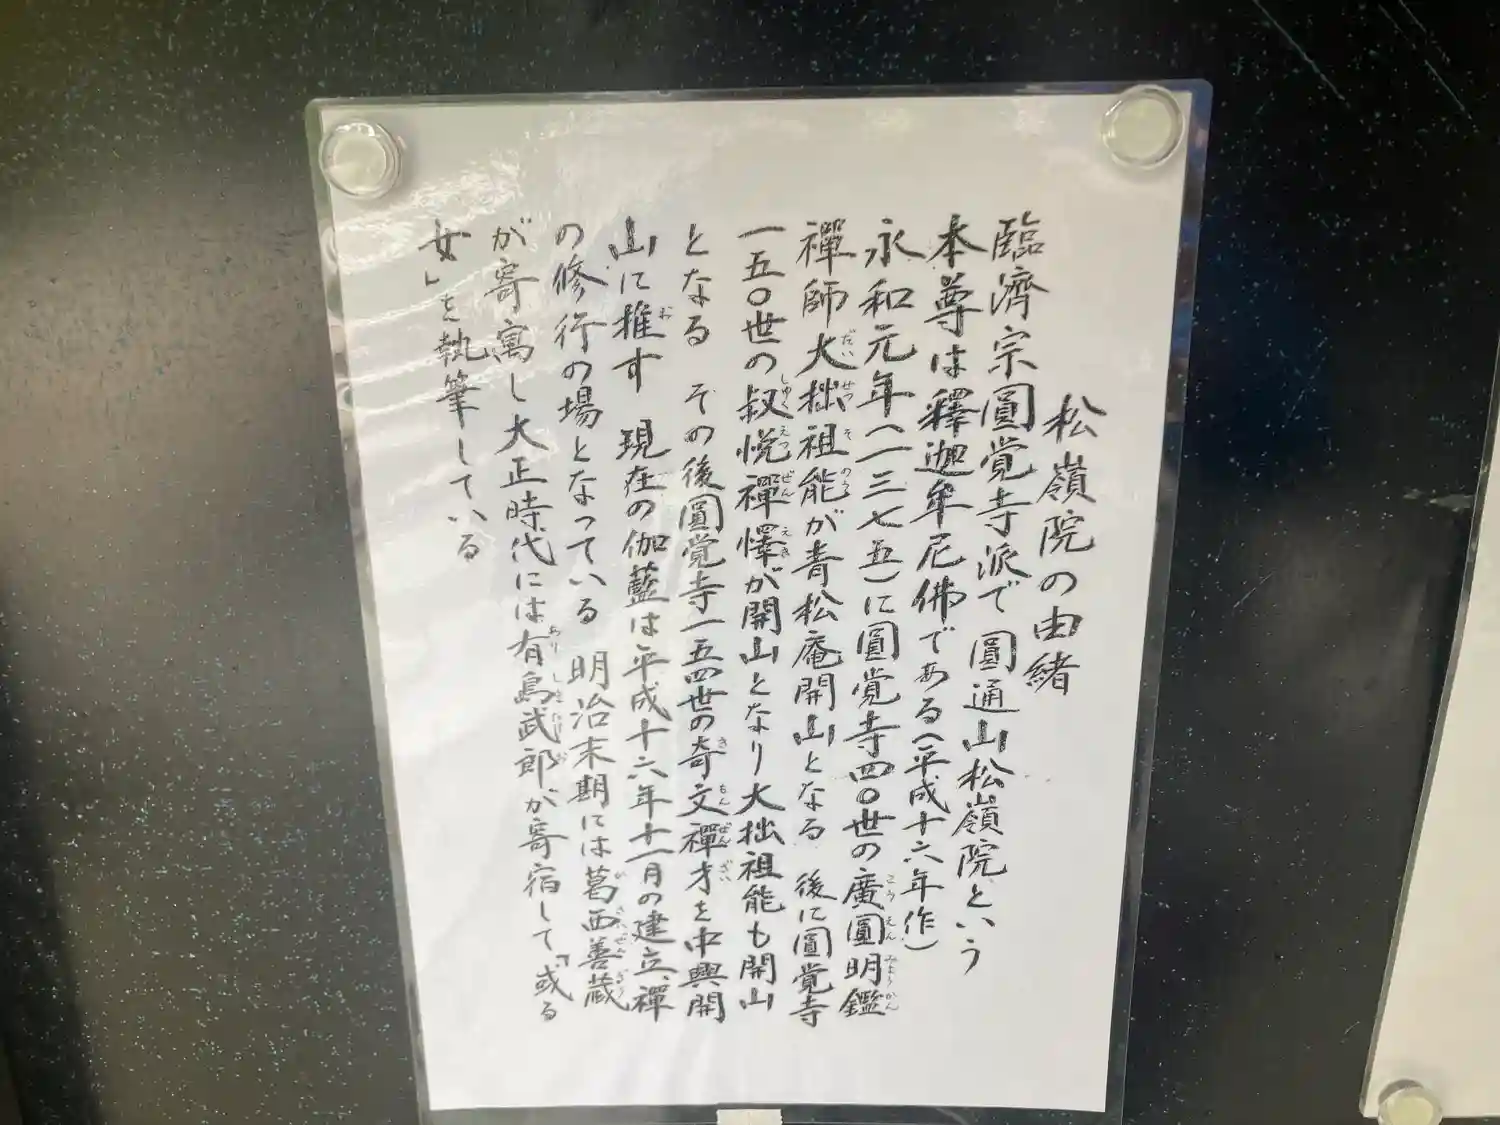 松嶺院の由緒
臨濟宗圓覚寺派で 圓通山松嶺院という
本尊は釋迦牟尼佛である（平成十六年作）
永和元年（一三七五）に圓覚寺四〇世の廣圓明鑑
禪師大拙祖能が青松庵開山となる 後に圓覚寺
一五〇世の叔悦禪懌が開山となり大拙祖能も開山
となる その後圓覚寺一五四世の奇文禪才を中興開
山に推す 現在の伽藍は平成十六年十一月の建立、禪
の修行の場となっている 明治末期には葛西善蔵
が寄寓し大正時代には有島武郎が寄宿して「或る
女」を執筆している